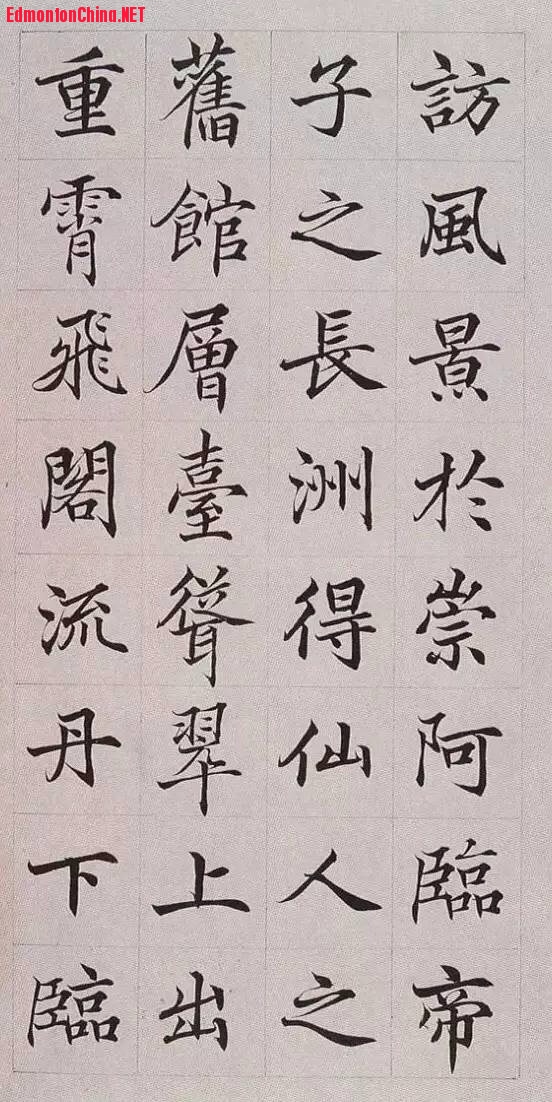 EdmontonChina.NET
訪風景於崇阿臨帝
子之長洲得仙人之
舊館層臺聳翠上出
重霄飛閣流丹下臨